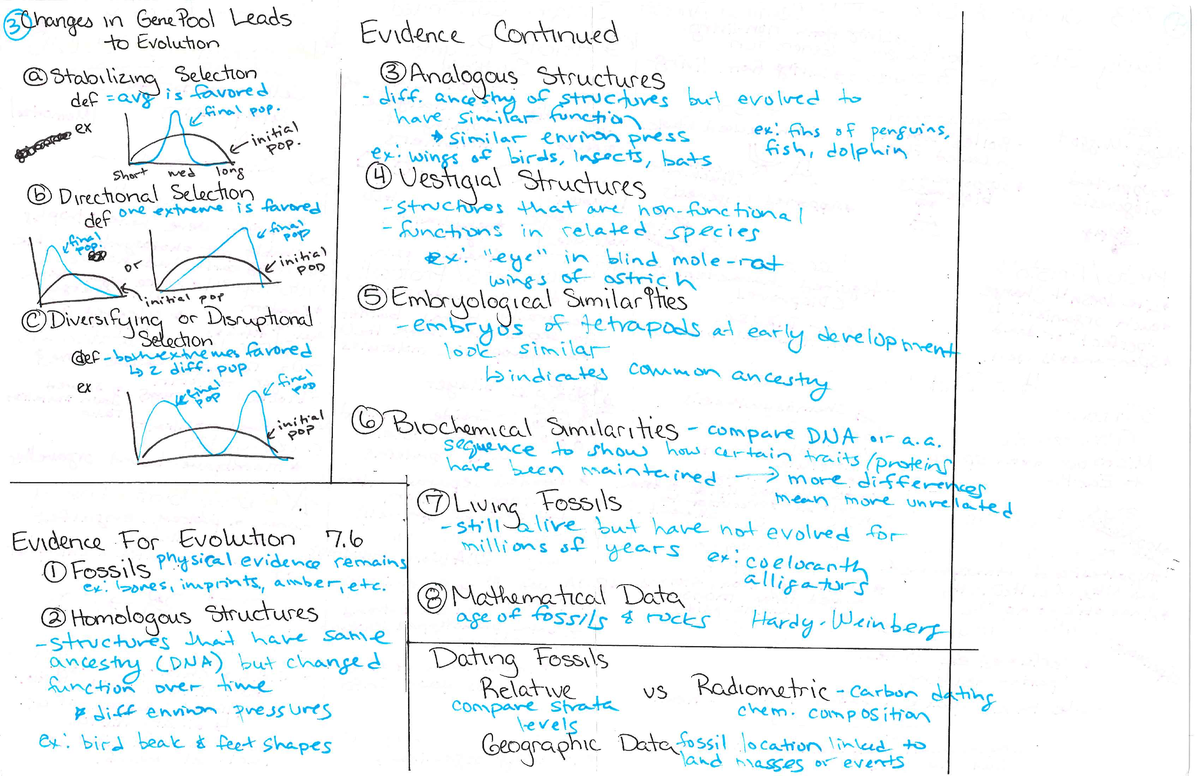 ③ Changes in Gene Pool Leads
to Evolution
ⓐ Stabilizing Selection
def = avg is favored
ex
final pop.
initial
pop.
short med long
ⓑ Directional Selection
def one extreme is favored
final
pop.
or
final
pop
initial
pop
initial pop
ⓒ Diversifying or Disruptional
Selection
def - both extremes favored
↳ 2 diff. pop
ex
final
pop
final
pop
initial
pop
Evidence For Evolution 7.6
① Fossils physical evidence remains
ex: bones, imprints, amber, etc.
② Homologous Structures
- structures that have same
ancestry (DNA) but changed
function over time
* diff environ pressures
ex: bird beak & feet shapes
Evidence Continued
③ Analogous Structures
- diff. ancestry of structures but evolved to
have similar function
* similar environ press
ex: wings of birds, insects, bats
ex: fins of penguins,
fish, dolphin
④ Vestigial Structures
- structures that are non-functional
- functions in related species
ex: "eye" in blind mole-rat
wings of ostrich
⑤ Embryological Similarities
- embryos of tetrapods at early development
look similar
↳ indicates common ancestry
⑥ Biochemical Similarities - compare DNA or a.a.
sequence to show how certain traits/proteins
have been maintained → more differences
mean more unrelated
⑦ Living Fossils
- still alive but have not evolved for
millions of years
ex: coelocanth
alligators
⑧ Mathematical Data
age of fossils & rocks Hardy-Weinberg
Dating Fossils
Relative vs Radiometric - carbon dating
compare strata
levels
chem. composition
Geographic Data fossil location linked to
land masses or events